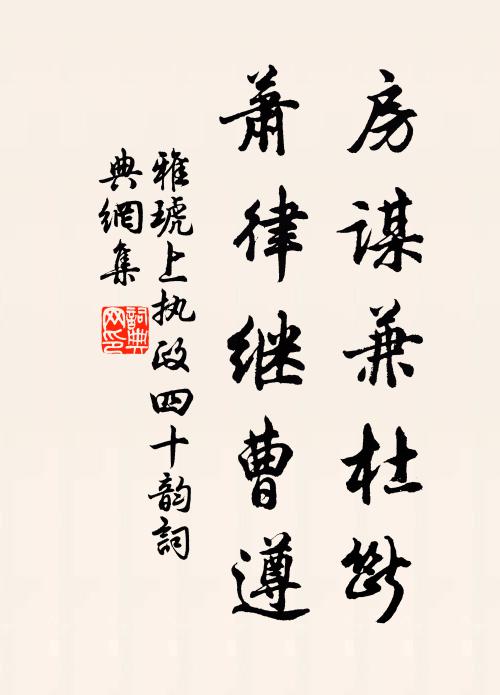 房谋兼杜断
萧律继曹遵
雅琥上执政四十韵词
典網集
詞典
网印